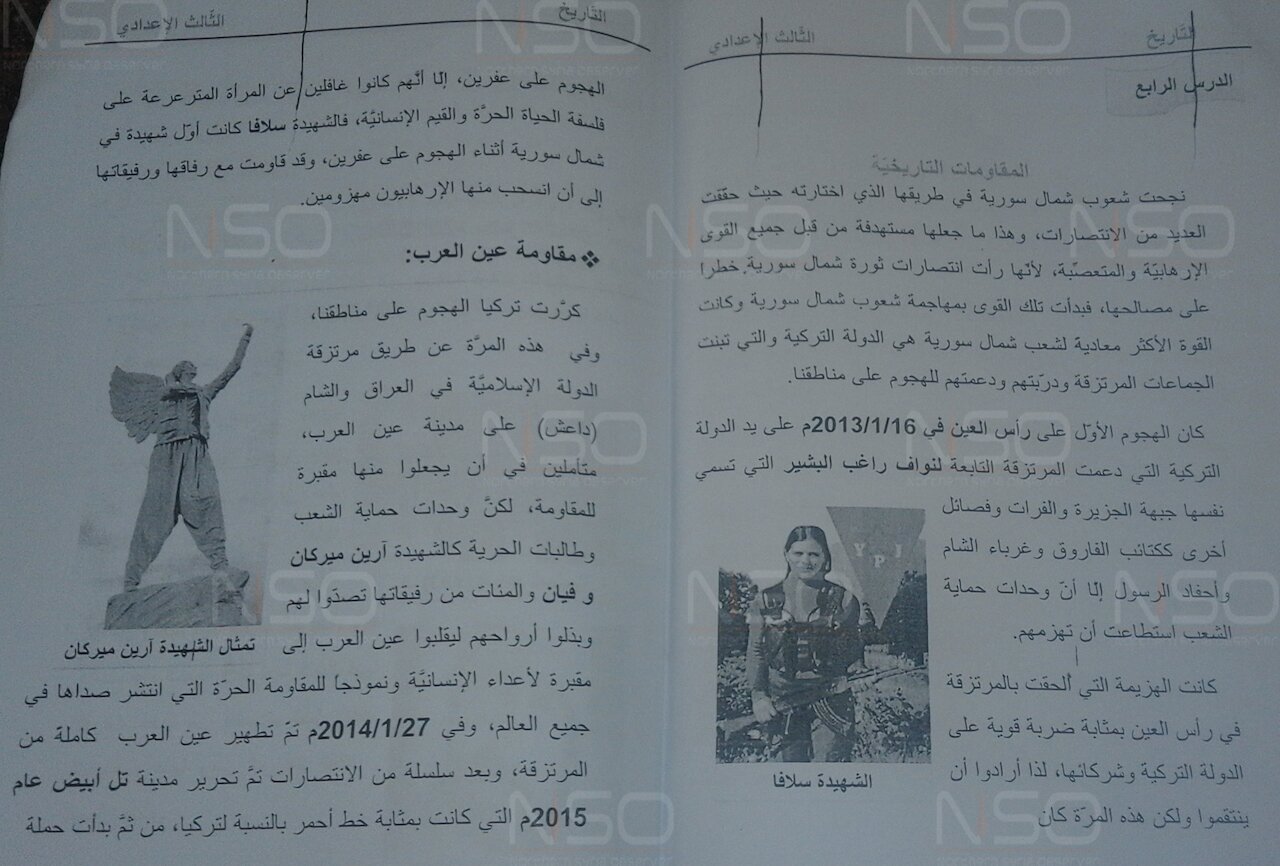 التّاريخ
الثّالث الإعدادي
الدرس الرابع
المقاومات التاريخيّة
نجحت شعوب شمال سورية في طريقها الذي اختارته حيث حقّقت
العديد من الانتصارات، وهذا ما جعلها مستهدفة من قبل جميع القوى
الإرهابيّة والمتعصّبة، لأنّها رأت انتصارات ثورة شمال سورية خطرا
على مصالحها، فبدأت تلك القوى بمهاجمة شعوب شمال سورية وكانت
القوة الأكثر معادية لشعب شمال سورية هي الدولة التركية والتي تبنت
الجماعات المرتزقة ودرّبتهم ودعمتهم للهجوم على مناطقنا.
كان الهجوم الأوّل على رأس العين في 2013/1/16م على يد الدولة
التركية التي دعمت المرتزقة التابعة لنواف راغب البشير التي تسمي
نفسها جبهة الجزيرة والفرات وفصائل
أخرى ككتائب الفاروق وغرباء الشام
وأحفاد الرسول إلّا أنّ وحدات حماية
الشعب استطاعت أن تهزمهم.
كانت الهزيمة التي ألحقت بالمرتزقة
في رأس العين بمثابة ضربة قوية على
الدولة التركية وشركائها، لذا أرادوا أن
ينتقموا ولكن هذه المرّة كان
YPJ
الشّهيدة سلافا
التّاريخ
الثّالث الإعدادي
الهجوم على عفرين، إلّا أنّهم كانوا غافلين عن المرأة المترعرعة على
فلسفة الحياة الحرَّة والقيم الإنسانيَّة، فالشهيدة سلافا كانت أوّل شهيدة في
شمال سورية أثناء الهجوم على عفرين، وقد قاومت مع رفاقها ورفيقاتها
إلى أن انسحب منها الإرهابيون مهزومين.
❖ مقاومة عين العرب:
كرَّرت تركيا الهجوم على مناطقنا،
وفي هذه المرَّة عن طريق مرتزقة
الدولة الإسلاميَّة في العراق والشام
(داعش) على مدينة عين العرب،
متأملين في أن يجعلوا منها مقبرة
للمقاومة، لكنَّ وحدات حماية الشعب
وطالبات الحرية كالشهيدة آرين ميركان
و فيان والمئات من رفيقاتها تصدّوا لهم
وبذلوا أرواحهم ليقلبوا عين العرب إلى
مقبرة لأعداء الإنسانيَّة ونموذجاً للمقاومة الحرّة التي انتشر صداها في
جميع العالم، وفي 2014/1/27م تمّ تطهير عين العرب كاملة من
المرتزقة، وبعد سلسلة من الانتصارات تمَّ تحرير مدينة تل أبيض عام
2015م التي كانت بمثابة خط أحمر بالنسبة لتركيا، من ثمَّ بدأت حملة
تمثال الشّهيدة آرين ميركان
NSO